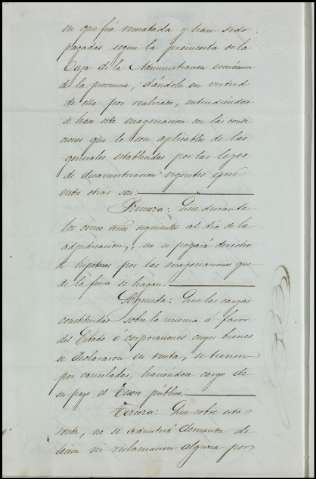 en que fué rematada y han sido
pagadas segun la presenta de la
Caja de la Administracion económica
de la provincia, dándole en virtud
de esta por realizada, entendiendose
si han sido enagenacion en las condi
ciones que le son aplicables de las
generales establecidas por las leyes
de desamortizacion vigentes, que
entre otras son:
Primera: Que durante
los cinco años siguientes al dia de la
adjudicacion, no se pagará derecho
de hipoteca por las enagenaciones que
de la finca se hagan.
Segunda: Que las cargas
constituidas sobre la misma á favor
del Estado ó corporaciones cuyos bienes
se declararon en venta, se tienen
por cancelados, haciendose cargo de
su pago el Tesoro público.
Tercera: Que sobre este
venta, no se admitirá demanda de
ni reclamacion alguna por